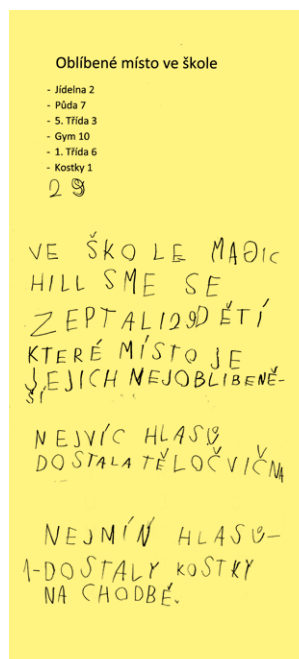 Oblíbené místo ve škole
- Jídelna 2
- Půda 7
- 5. Třída 3
- Gym 10
- 1. Třída 6
- Kostky 1
29
VE ŠKOLE MAGIC
HILL SME SE
ZEPTALI 29 DĚTÍ
KTERÉ MÍSTO JE
JEJICH NEJOBLIBENĚ-
ŠÍ
NEJVÍC HLASŮ
DOSTALA TĚLOČVIČNA
NEJMÍŇ HLASU-
1-DOSTALY KOSTKY
NA CHODBĚ.